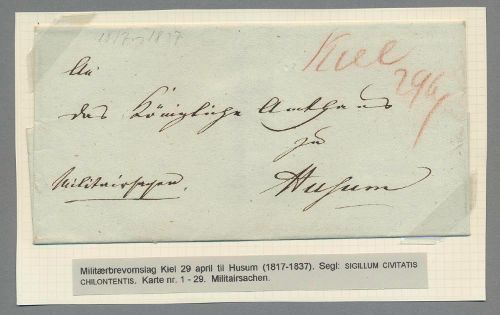 1817-1837
Kiel
29/4
An
das Königliche Amthaus
zu
Husum
Militairsachen.
Militærbrevomslag Kiel 29 april til Husum (1817-1837). Segl: SIGILLUM CIVITATIS
CHILONTENTIS. Karte nr. 1 - 29. Militairsachen.